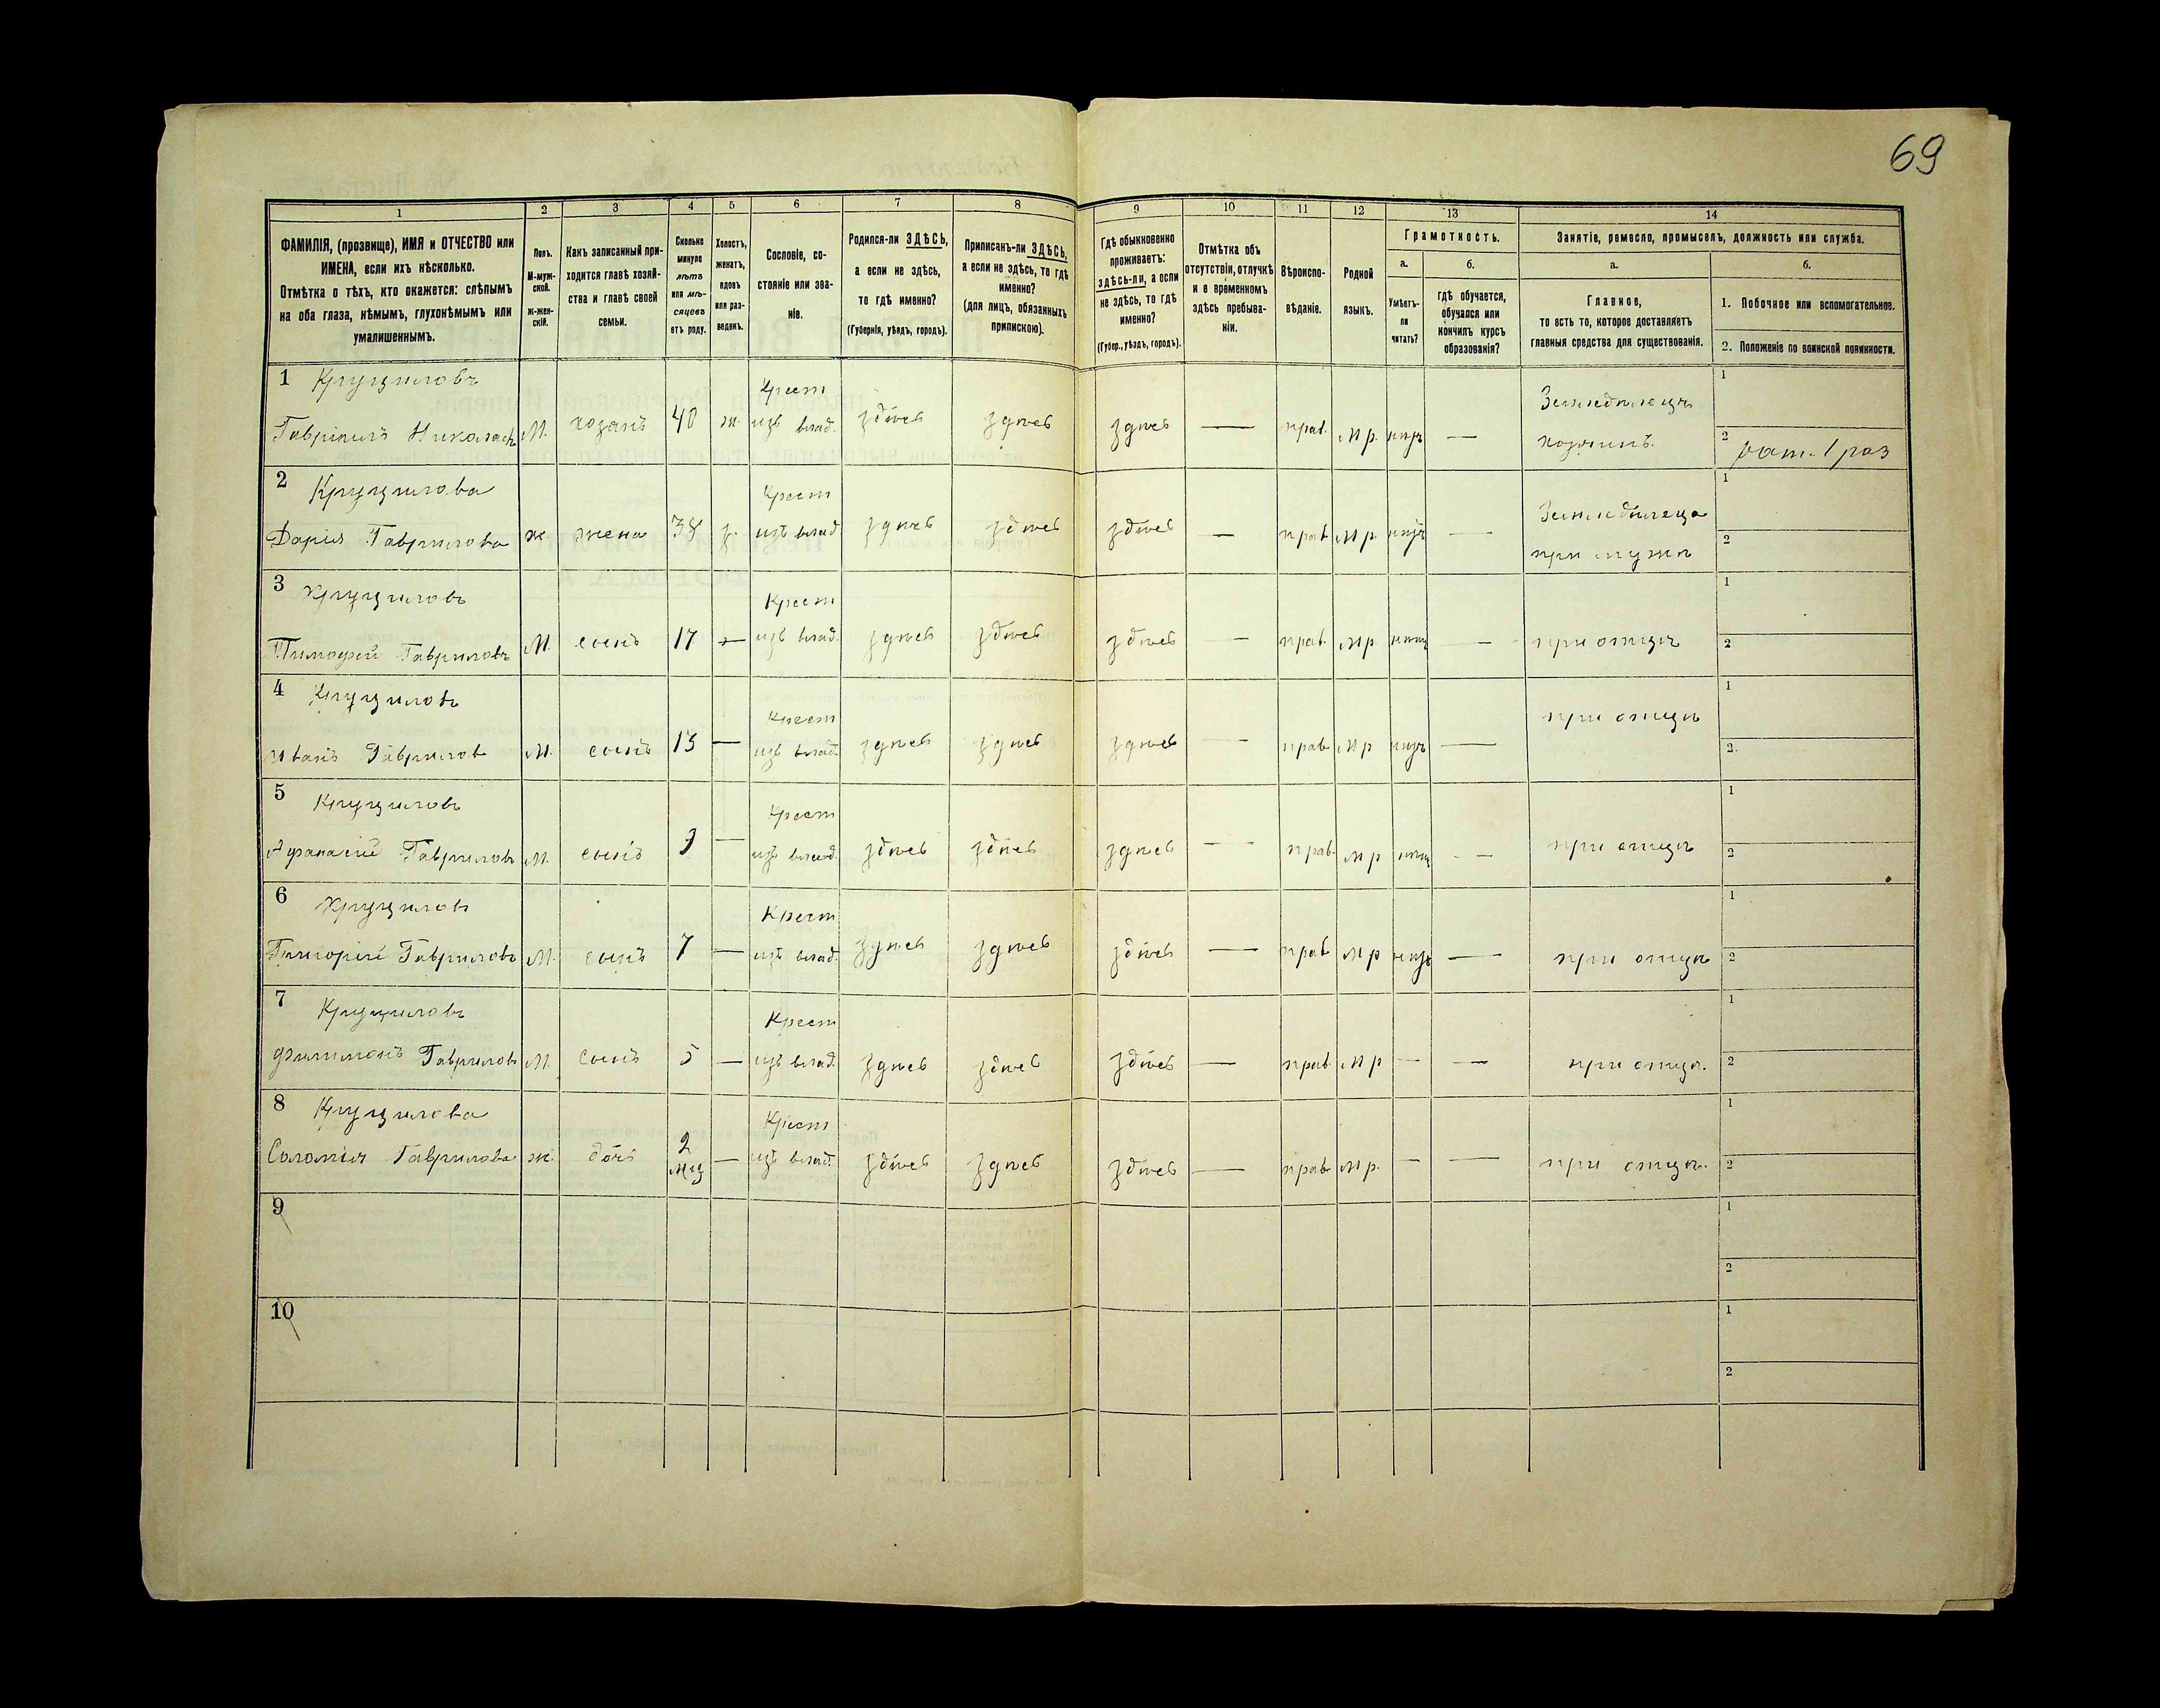 69
1 2 3 4 5 6 7 8 9 10 11 12 13 14
ФАМИЛІЯ, (прозвище), ИМЯ и ОТЧЕСТВО или
ИМЕНА, если ихъ нѣсколько.
Отмѣтка о тѣхъ, кто окажется: слѣпымъ
на оба глаза, нѣмымъ, глухонѣмымъ или
умалишеннымъ.
Полъ.
М-муж-
ской.
Ж-жен-
скій.
Какъ записанный при-
ходится главѣ хозяй-
ства и главѣ своей
семьи.
Сколько
минуло
лѣтъ
или мѣ-
сяцевъ
отъ роду.
Холостъ,
женатъ,
вдовъ
или раз-
веденъ.
Сословіе, со-
стояніе или зва-
ніе.
Родился-ли ЗДѢСЬ,
а если не здѣсь,
то гдѣ именно?
(Губернія, уѣздъ, городъ).
Приписанъ-ли ЗДѢСЬ,
а если не здѣсь, то гдѣ
именно?
(для лицъ, обязанныхъ
припискою).
Гдѣ обыкновенно
проживаетъ:
здѣсь-ли, а если
не здѣсь, то гдѣ
именно?
(Губер., уѣздъ, городъ).
Отмѣтка объ
отсутствіи, отлучкѣ
и о временномъ
здѣсь пребыва-
ніи.
Вѣроиспо-
вѣданіе.
Родной
языкъ.
Грамотность.
а.
Умѣетъ-
ли
читать?
б.
гдѣ обучается,
обучался или
кончилъ курсъ
образованія?
Занятіе, ремесло, промыселъ, должность или служба.
а.
Главное,
то есть то, которое доставляетъ
главныя средства для существованія.
б.
1. Побочное или вспомогательное.
2. Положеніе по воинской повинности.
1 Круциловъ Крест Земледѣлецъ 1
Гавріилъ М. хозаинъ 40 ж. изъ влад. здѣсь здѣсь здѣсь — прав. мр. — хозяинъ. 2 рат. 1 раз
2 Круцилова Крест Земледѣлеца 1
Дарія Гаврилова ж. жена 38 з. изъ влад здѣсь здѣсь здѣсь — прав мр. — при мужѣ 2
3 Круциловъ Крест 1
Тимофей Гавриловъ М. сынъ 17 — изъ влад. здѣсь здѣсь здѣсь — прав. мр — при отцѣ 2
4 Круциловъ Крест при отцѣ 1
Иванъ Гаврилов М. сынъ изъ влад здѣсь здѣсь здѣсь — прав мр — 2.
5 Круциловъ Крест 1
Афанасій Гавриловъ М. сынъ — изъ влад. здѣсь здѣсь здѣсь — прав. мр — при отцѣ 2
6 Круциловъ Крест 1
Григорій Гавриловъ М. сынъ 7 — изъ влад. здѣсь здѣсь здѣсь — прав мр — при отцѣ 2
7 Круциловъ Крест 1
Филимонъ Гавриловъ М. сынъ 5 — изъ влад. здѣсь здѣсь здѣсь — прав мр — — при отцѣ. 2
8 Круцилова Крест 1
Саломія Гаврилова ж. дочь 2 мц — изъ влад. здѣсь здѣсь здѣсь — прав мр. — — при отцѣ. 2
9 1
2
10 1
2